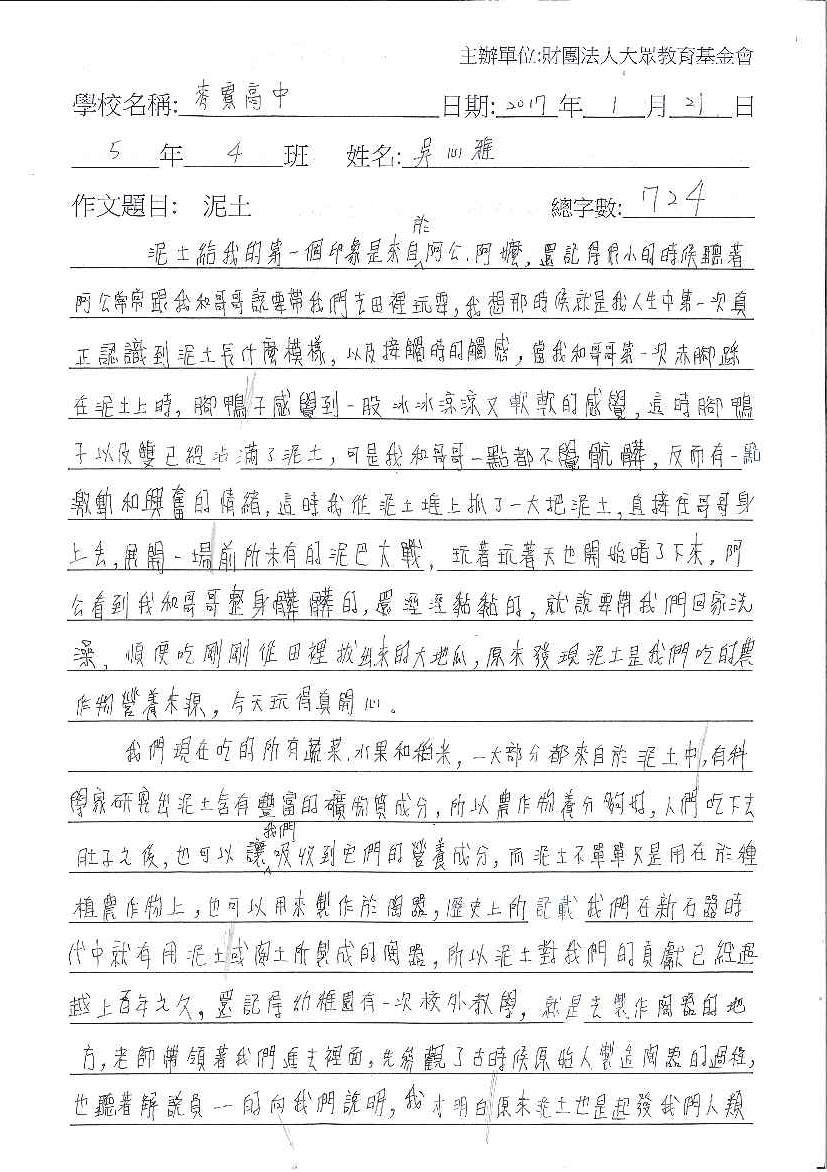 主辦單位:財團法人大眾教育基金會
學校名稱: 麥寮高中 日期: 2017 年 1 月 21 日
5 年 4 班 姓名: 吳心雅
作文題目: 泥土 總字數: 724
泥土給我的第一個印象是來自於阿公、阿嬤,還記得很小的時候聽著
阿公常常跟我和哥哥說要帶我們去田裡玩耍,我想那時候就是我人生中第一次真
正認識到泥土長什麼模樣,以及接觸時的觸感,當我和哥哥第一次赤腳踩
在泥土上時,腳鴨子感覺到一股冰冰涼涼又軟軟的感覺,這時腳鴨
子以及雙已經沾滿了泥土,可是我和哥哥一點都不覺骯髒,反而有一點
激動和興奮的情緒,這時我從泥土堆上抓了一大把泥土,直接往哥哥身
上丟,展開一場前所未有的泥巴大戰,玩著玩著天也開始暗了下來,阿
公看到我和哥哥整身髒髒的,還溼溼黏黏的,就說要帶我們回家洗
澡,順便吃剛剛從田裡拔出來的大地瓜,原來發現泥土是我們吃的農
作物營養來源,今天玩得真開心。
我們現在吃的所有蔬菜、水果和稻米,一大部分都來自於泥土中,有科
學家研究出泥土含有豐富的礦物質成分,所以農作物養分夠好,人們吃下去
肚子之後,也可以讓我們吸收到它們的營養成分,而泥土不單單只是用在於種
植農作物上,也可以用來製作於陶器,歷史上所記載我們在新石器時
代中就有用泥土或陶土所製成的陶器,所以泥土對我們的貢獻已經超
越上百年之久,還記得幼稚園有一次校外教學,就是去製作陶器的地
方,老師帶領著我們進去裡面,先參觀了古時候原始人製造陶器的過程,
也聽著解說員一一的向我們說明,我才明白原來泥土也是起發我們人類